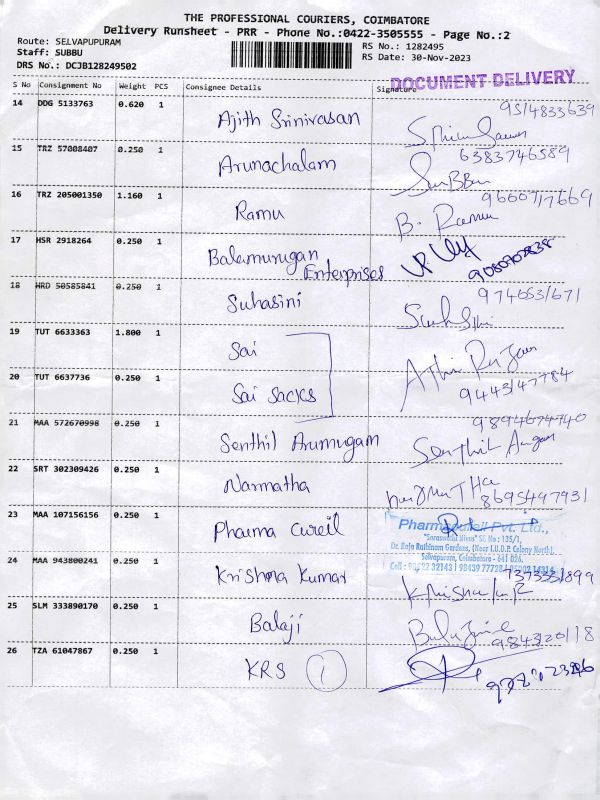 THE PROFESSIONAL COURIERS, COIMBATORE
Delivery Runsheet - PRR - Phone No.:0422-3505555 - Page No.:2
Route: SELVAPUPURAM
Staff: SUBBU
DRS No.: DCJB128249502
RS No.: 1282495
RS Date: 30-Nov-2023
DOCUMENT DELIVERY
S No Consignment No Weight PCS Consignee Details Signature
14 DDG 5133763 0.620 1 Ajith Srinivasan 9514833639
15 TRZ 57008407 0.250 1 Arunachalam 6383746589
16 TRZ 205001350 1.160 1 Ramu B. Ramu
17 HSR 2918264 0.250 1 Balamurugan
Enterprises
18 HRD 50585841 0.250 1 Suhasini
19 TUT 6633363 1.800 1 Sai
20 TUT 6637736 0.250 1 Sai Sacks 9443147784
21 MAA 572670998 0.250 1 Senthil Arumugam 9894674740
22 SRT 302309426 0.250 1 Narmatha 8695497931
23 MAA 107156156 0.250 1 Pharma Cureil
Pharma Pvt. Ltd.,
"Saraswathi Nivas" Sf. No : 135/1,
Dr. Raja Rathinam Gardens, (Near I.U.D.P. Colony North),
Selvapuram, Coimbatore - 641 026.
24 MAA 943800241 0.250 1 Krishna Kumar 7373551899
25 SLM 333890170 0.250 1 Balaji 984320118
26 TZA 61047867 0.250 1 KRS 1